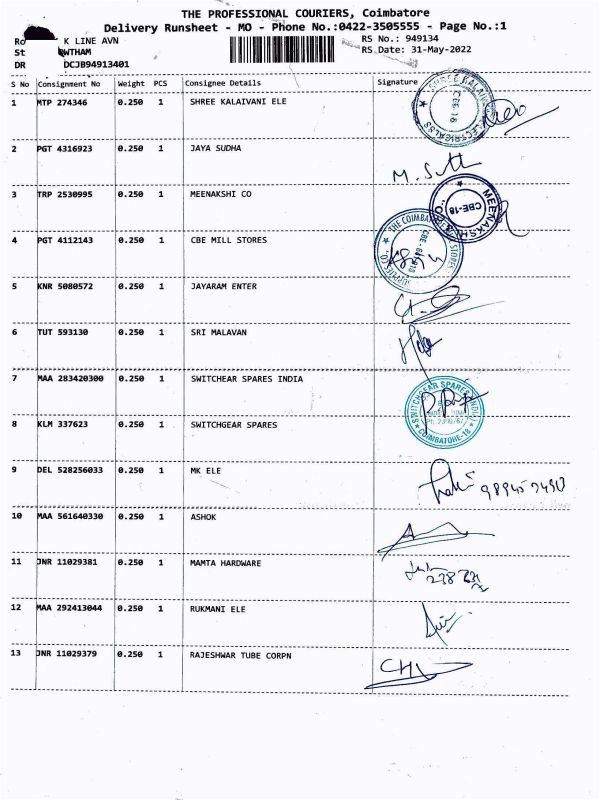 THE PROFESSIONAL COURIERS, Coimbatore
Delivery Runsheet - MO - Phone No.:0422-3505555 - Page No.:1
Ro K LINE AVN RS No.: 949134
St WTHAM RS Date: 31-May-2022
DR DCJB94913401
S No Consignment No Weight PCS Consignee Details Signature
1 MTP 274346 0.250 1 SHREE KALAIVANI ELE
2 PGT 4316923 0.250 1 JAYA SUDHA
3 TRP 2530995 0.250 1 MEENAKSHI CO
CBE-18
4 PGT 4112143 0.250 1 CBE MILL STORES
5 KNR 5080572 0.250 1 JAYARAM ENTER
6 TUT 593130 0.250 1 SRI MALAVAN
7 MAA 283420300 0.250 1 SWITCHEAR SPARES INDIA
SWITCHGEAR SPARES INDIA
COIMBATORE-18
8 KLM 337623 0.250 1 SWITCHGEAR SPARES
9 DEL 528256033 0.250 1 MK ELE
10 MAA 561640330 0.250 1 ASHOK
11 JNR 11029381 0.250 1 MAMTA HARDWARE
12 MAA 292413044 0.250 1 RUKMANI ELE
13 JNR 11029379 0.250 1 RAJESHWAR TUBE CORPN